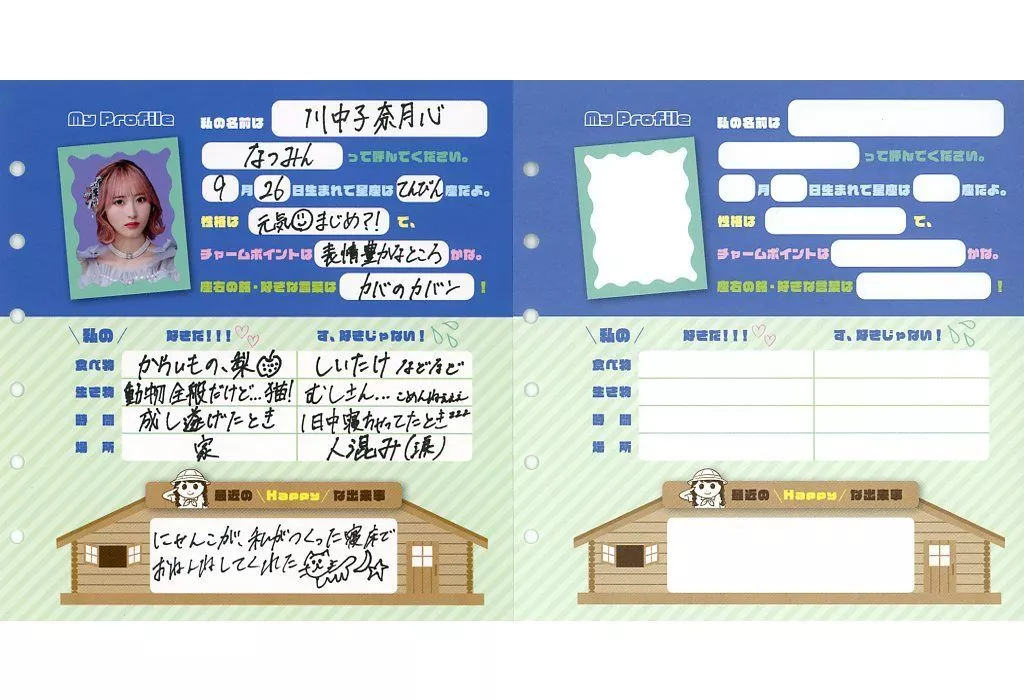 My Profile
私の名前は 川中子奈月心
なつみん って呼んでください。
9月26日生まれて星座はてんびん座だよ。
性格は 元気まじめ?! で、
チャームポイントは 表情豊かなところ かな。
座右の銘・好きな言葉は カバのカバン !
\私の/ 好きだ!!! す、好きじゃない!
食べ物 からいもの、梨 しいたけ などなど
生き物 動物全般だけど…猫! むしさん… ごめんねぇぇぇ
時間 成し遂げたとき 1日中寝ちゃってたとき
場所 家 人混み(涙)
最近の\Happy/な出来事
にゃんこが、私がつくった寝床で
おねんねしてくれた
My Profile
私の名前は
って呼んでください。
月 日生まれて星座は 座だよ。
性格は で、
チャームポイントは かな。
座右の銘・好きな言葉は !
\私の/ 好きだ!!! す、好きじゃない!
食べ物
生き物
時間
場所
最近の\Happy/な出来事